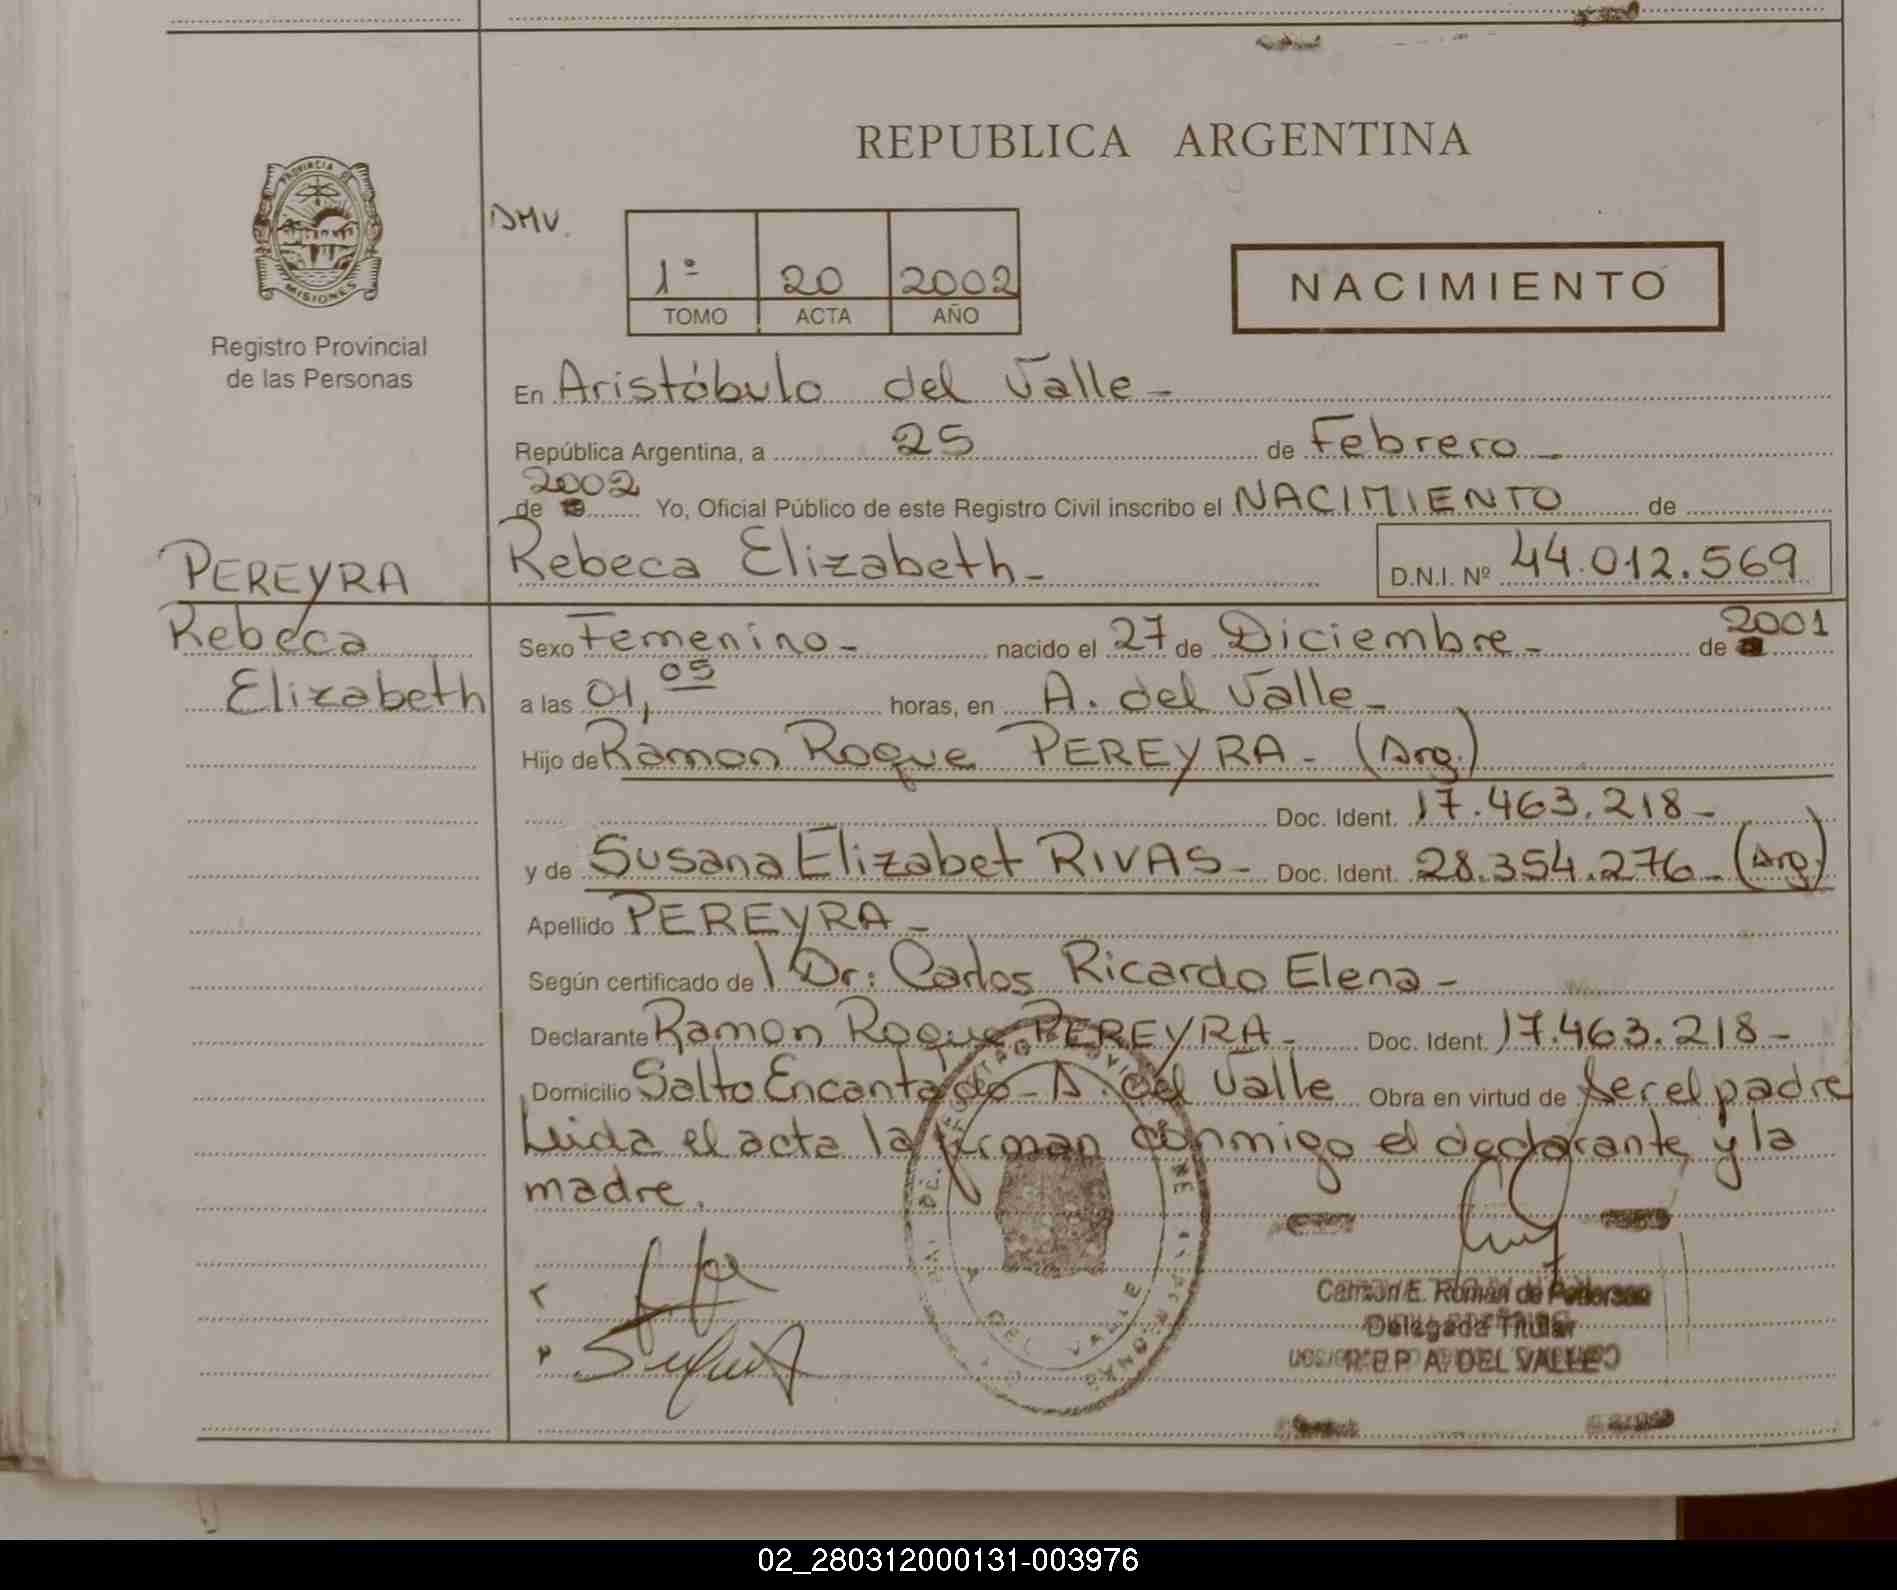 REPUBLICA ARGENTINA
PROVINCIA DE
MISIONES
Registro Provincial
de las Personas
DMV.
1º 20 2002
TOMO ACTA AÑO
NACIMIENTO
En Aristóbulo del Valle-
República Argentina, a 25 de Febrero-
2002
de Yo, Oficial Público de este Registro Civil inscribo el NACIMIENTO de
PEREYRA
Rebeca
Elizabeth
Rebeca Elizabeth- D.N.I. Nº 44.012.569
Sexo Femenino- nacido el 27 de Diciembre- de 2001
a las 01,05 horas, en A. del Valle-
Hijo de Ramon Roque PEREYRA- (Arg.)
Doc. Ident. 17.463.218-
y de Susana Elizabet RIVAS- Doc. Ident. 28.354.276- (Arg.)
Apellido PEREYRA-
Según certificado de l Dr: Carlos Ricardo Elena-
Declarante Ramon Roque PEREYRA- Doc. Ident. 17.463.218-
Domicilio Salto Encantado- A. del Valle Obra en virtud de ser el padre
Leida el acta la firman conmigo el declarante y la
madre.
A DEL VALLE
E. Román de
Delegada Titular
R.P.P. A. DEL VALLE
02_280312000131-003976